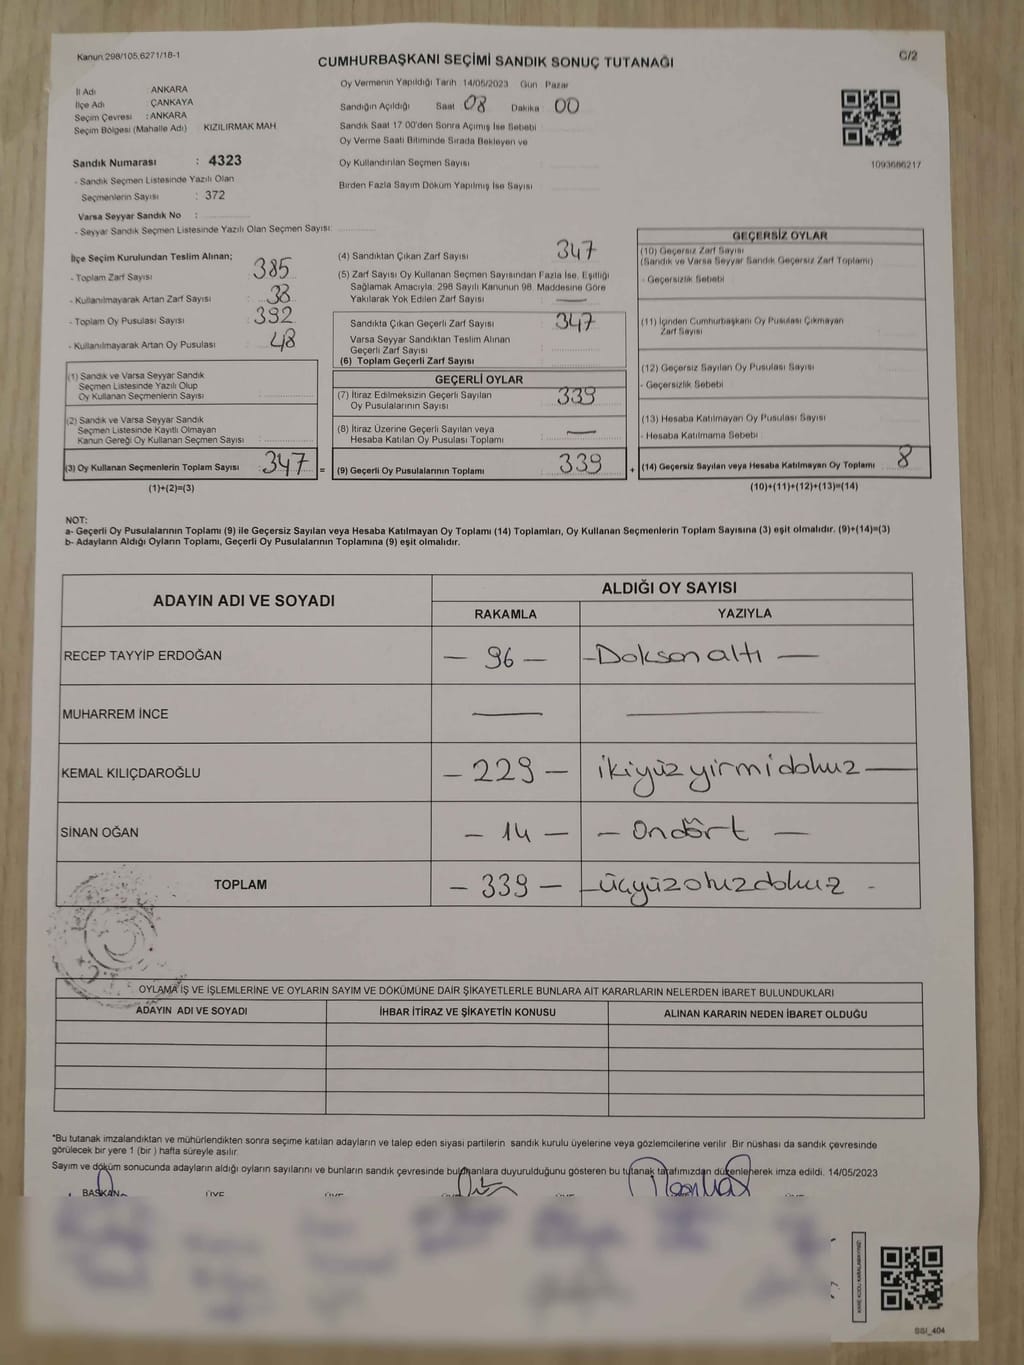 Kanun 298/105,6271/18-1
C/2
CUMHURBAŞKANI SEÇİMİ SANDIK SONUÇ TUTANAĞI
İl Adı : ANKARA
İlçe Adı : ÇANKAYA
Seçim Çevresi : ANKARA
Seçim Bölgesi (Mahalle Adı) : KIZILIRMAK MAH
Sandık Numarası : 4323
- Sandık Seçmen Listesinde Yazılı Olan
Seçmenlerin Sayısı : 372
Varsa Seyyar Sandık No :
- Seyyar Sandık Seçmen Listesinde Yazılı Olan Seçmen Sayısı:
Oy Vermenin Yapıldığı Tarih 14/05/2023 Gün Pazar
Sandığın Açıldığı Saat 08 Dakika 00
Sandık Saat 17 00'den Sonra Açımış İse Sebebi
Oy Verme Saati Bitiminde Sırada Bekleyen ve
Oy Kullandırılan Seçmen Sayısı
Birden Fazla Sayım Döküm Yapılmış İse Sayısı
1093686217
İlçe Seçim Kurulundan Teslim Alınan;
- Toplam Zarf Sayısı 385
- Kullanılmayarak Artan Zarf Sayısı 38
- Toplam Oy Pusulası Sayısı 392
- Kullanılmayarak Artan Oy Pusulası 48
(1) Sandık ve Varsa Seyyar Sandık
Seçmen Listesinde Yazılı Olup
Oy Kullanan Seçmenlerin Sayısı :
(2) Sandık ve Varsa Seyyar Sandık
Seçmen Listesinde Kayıtlı Olmayan
Kanun Gereği Oy Kullanan Seçmen Sayısı :
(3) Oy Kullanan Seçmenlerin Toplam Sayısı : 347 =
(1)+(2)=(3)
(4) Sandıktan Çıkan Zarf Sayısı 347
(5) Zarf Sayısı Oy Kullanan Seçmen Sayısından Fazla İse, Eşitliği
Sağlamak Amacıyla; 298 Sayılı Kanunun 98. Maddesine Göre
Yakılarak Yok Edilen Zarf Sayısı —
Sandıkta Çıkan Geçerli Zarf Sayısı 347
Varsa Seyyar Sandıktan Teslim Alınan
Geçerli Zarf Sayısı
(6) Toplam Geçerli Zarf Sayısı
GEÇERLİ OYLAR
(7) İtiraz Edilmeksizin Geçerli Sayılan
Oy Pusulalarının Sayısı 339
(8) İtiraz Üzerine Geçerli Sayılan veya
Hesaba Katılan Oy Pusulası Toplamı —
(9) Geçerli Oy Pusulalarının Toplamı 339 +
GEÇERSİZ OYLAR
(10) Geçersiz Zarf Sayısı
(Sandık ve Varsa Seyyar Sandık Geçersiz Zarf Toplamı)
- Geçersizlik Sebebi
(11) İçinden Cumhurbaşkanı Oy Pusulası Çıkmayan
Zarf Sayısı
(12) Geçersiz Sayılan Oy Pusulası Sayısı
- Geçersizlik Sebebi
(13) Hesaba Katılmayan Oy Pusulası Sayısı
- Hesaba Katılmama Sebebi
(14) Geçersiz Sayılan veya Hesaba Katılmayan Oy Toplamı 8
(10)+(11)+(12)+(13)=(14)
NOT:
a- Geçerli Oy Pusulalarının Toplamı (9) ile Geçersiz Sayılan veya Hesaba Katılmayan Oy Toplamı (14) Toplamları, Oy Kullanan Seçmenlerin Toplam Sayısına (3) eşit olmalıdır. (9)+(14)=(3)
b- Adayların Aldığı Oyların Toplamı, Geçerli Oy Pusulalarının Toplamına (9) eşit olmalıdır.
ADAYIN ADI VE SOYADI
ALDIĞI OY SAYISI
RAKAMLA YAZIYLA
RECEP TAYYİP ERDOĞAN — 96 — — Doksanaltı —
MUHARREM İNCE — —
KEMAL KILIÇDAROĞLU — 229 — ikiyüzyirmidokuz —
SİNAN OĞAN — 14 — — Ondört —
TOPLAM — 339 — — üçyüzotuzdokuz -
OYLAMA İŞ VE İŞLEMLERİNE VE OYLARIN SAYIM VE DÖKÜMÜNE DAİR ŞİKAYETLERLE BUNLARA AİT KARARLARIN NELERDEN İBARET BULUNDUKLARI
ADAYIN ADI VE SOYADI İHBAR İTİRAZ VE ŞİKAYETİN KONUSU ALINAN KARARIN NEDEN İBARET OLDUĞU
"Bu tutanak imzalandıktan ve mühürlendikten sonra seçime katılan adayların ve talep eden siyasi partilerin sandık kurulu üyelerine veya gözlemcilerine verilir Bir nüshası da sandık çevresinde
görülecek bir yere 1 (bir ) hafta süreyle asılır.
Sayım ve döküm sonucunda adayların aldığı oyların sayılarını ve bunların sandık çevresinde bulunanlara duyurulduğunu gösteren bu tutanak tarafımızdan düzenlenerek imza edildi. 14/05/2023
BAŞKAN ÜYE ÜYE
KARE KODU KARALAMAYINIZ!
SSI_404